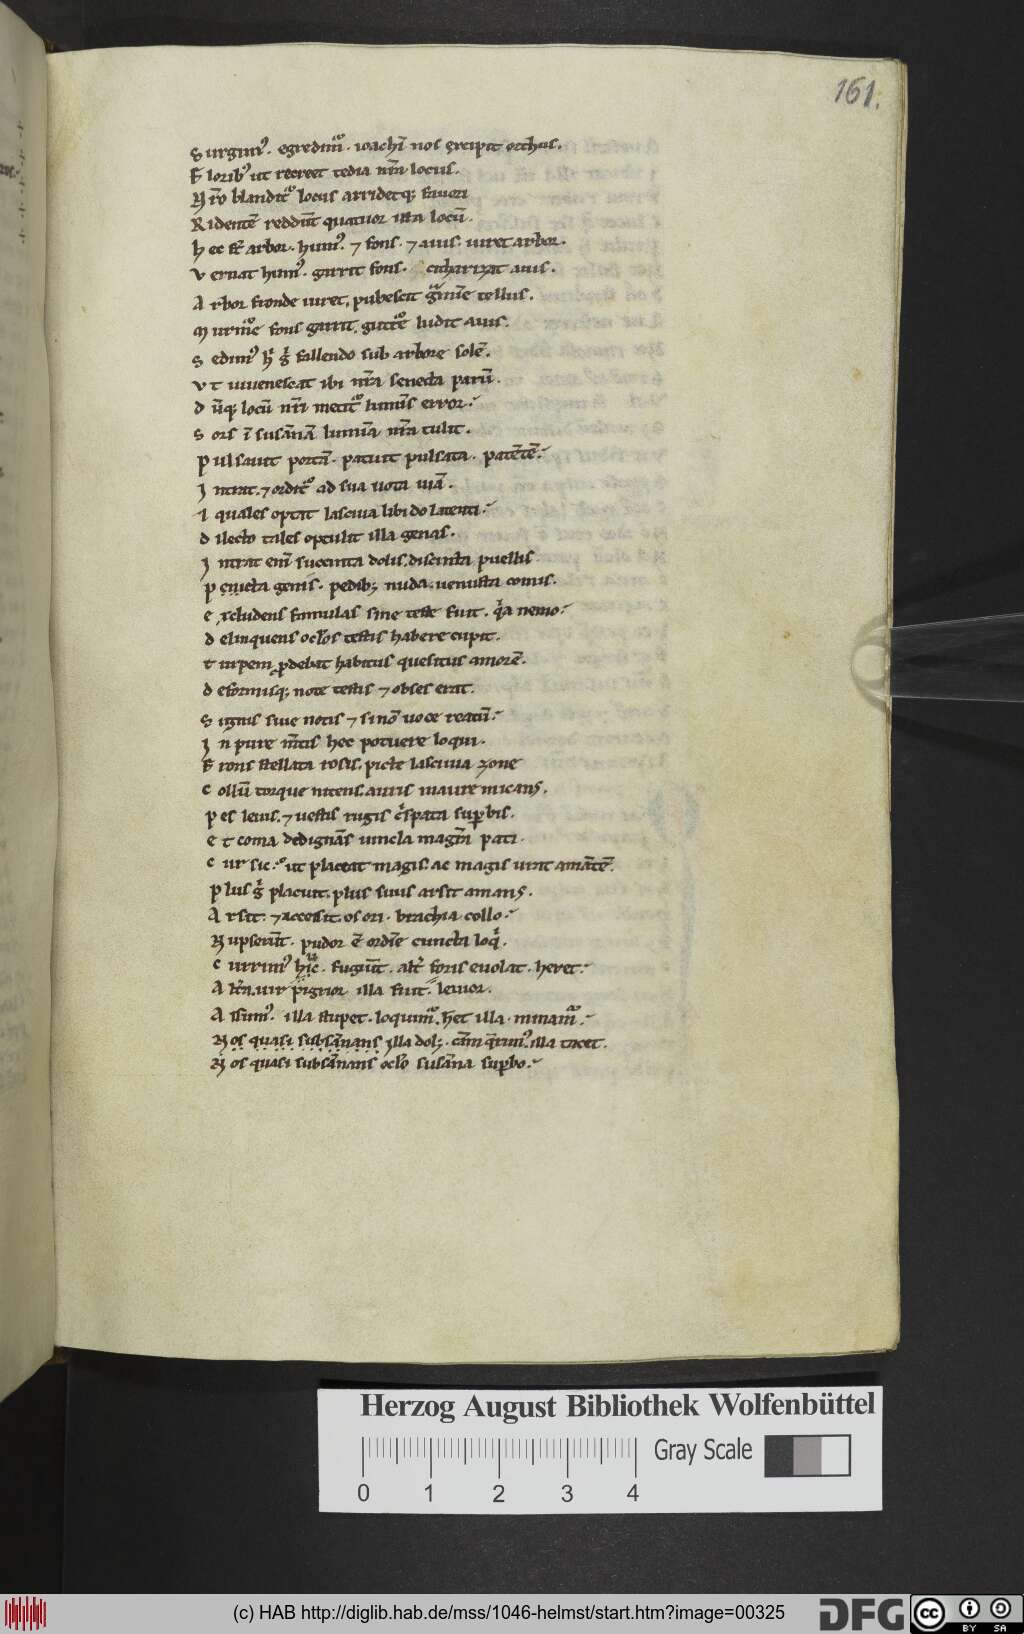 161.
S urgim᷒. egredimᷣ. ioachī nos ęrcipit orthus.
F lorib᷒ ut recreet tedia nr̄m locus.
N r̄o blanditᷣ locus arridetq; fauori
R identē reddūt quatuor ista locū.
h ec st̄ arbor. hum᷒. ⁊ fons. ⁊ auis. uiret arbor.
V ernat hum᷒. garrit fons. citharizat auis.
A rbor fronde uiret, pubescit gͣmine tellus.
M urmͦe fons garrit. guttᷣe ludit auis.
S edim᷒ hͥ gͥ fallendo sub arbore solē.
V t iuuenescat ibi nr̄a senecta parū.
D ūq; locū nr̄i metitᷣ luminis error.
S ors ī susannā lumina nr̄a tulit.
P ulsauit portā. patuit pulsata. patētē.
I ntrat. ⁊ orditᷣ ad sua uota uiā.
I quales optat lasciua libido latenti.
D ilecto tales optulit illa genas.
I ntrat enī succinta dolis. discincta puellis
P ęuicta genis. pedib; nuda. uenusta comis.
E xcludens famulas sine teste fuit. qͥa nemo.
D elinquens oc̄los testis habere cupit.
T urpem ꝓdebat habitus quesitus amorē.
D eformisq; note testis ⁊ obses erat.
S ignis siue notis ⁊ si nō uoce reatū.
I n pure mētis hec potuere loqui.
F rons stellata rosis. picte lasciuia zone
C ollū torque nitens. auris inaure micans.
P es leuis. ⁊ uestis rugis cͥspata suꝑbis.
E t coma dedignās uincla magr̄m pati.
C ur sic. ut placeat magis. ac magis urat amātē.
P lus gͥ placuit. plus suus arsit amans.
A rsit. ⁊ accessit. os ori. brachia collo.
N upserūt. pudor ē ordīe cuncta loqͥ.
C urrim᷒ hͥc. fugiūt. alt̄ foris euolat. heret.
A lt̄a. uir pͥgrior illa fuit. leuior.
A ssum᷒. illa stupet. loquimᷣ. h̄et illa. minamᷣ.
N os quasi subsānans illa dol;. cām qͣrim᷒. illa tacet.
N os quasi subsānans oc̄lo susāna suꝑbo.
Herzog August Bibliothek Wolfenbüttel
Gray Scale
0 1 2 3 4
(c) HAB http://diglib.hab.de/mss/1046-helmst/start.htm?image=00325
DFG
cc BY SA